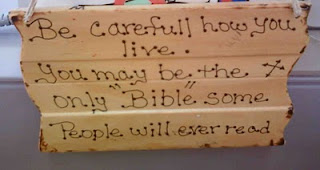 Be carefull how you
live.
You may be the
only "Bible some
People will ever read